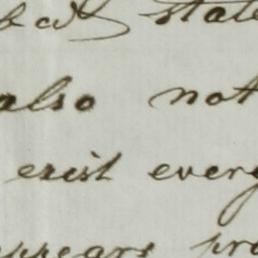 state
also not
exist every
appears pro